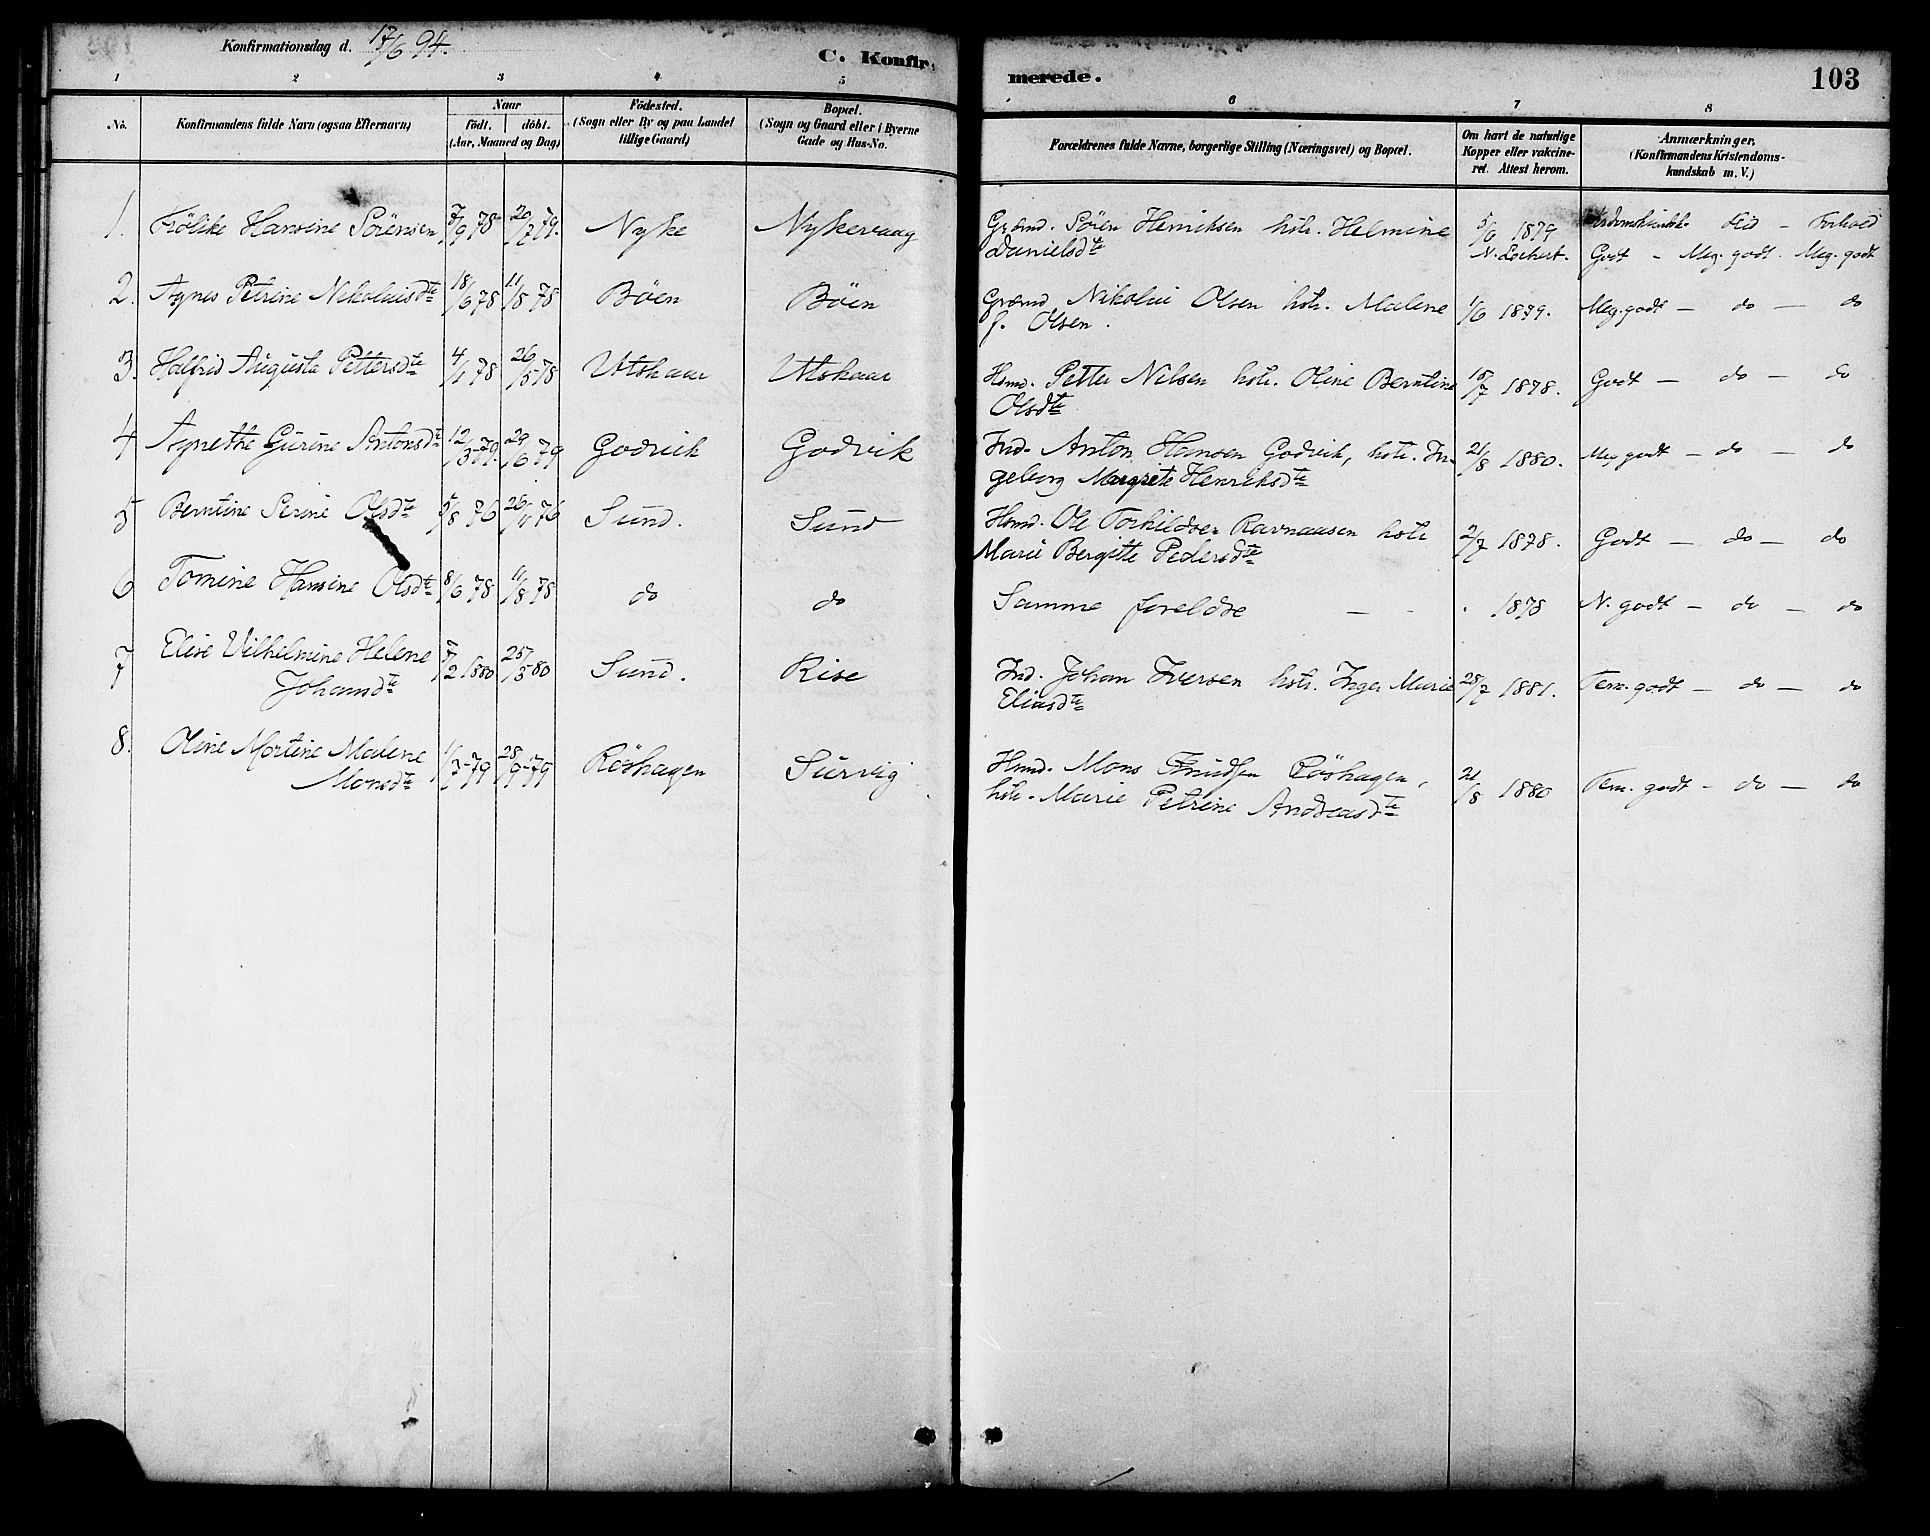 Konfirmationsdag d. 17/6 94.
C. Konfir-
merede.
103
1 2 3 4 5 6 7 8
No.
Konfirmandens fulde Navn (ogsaa Efternavn)
Naar
födt. döbt.
(Aar, Maaned og Dag)
Födested.
(Sogn eller By og paa Landet
tillige Gaard)
Bopæl.
(Sogn og Gaard eller i Byerne
Gade og Hus-No.
Forældrenes fulde Navne, borgerlige Stilling (Næringsvei) og Bopæl.
Om havt de naturlige
Kopper eller vakcine-
ret. Attest herom.
Anmærkninger,
(Konfirmandens Kristendoms-
kundskab m. V.)
1. Hansine Sörensen 7/9 78 20/7 79. Nyke Nykevaag Grdmd. Sören Henriksen hstr. Helmine 5/6 1879 Flid - Forhold
Danielsdte N. Lockert. Godt - Meg. godt. Meg. godt
2. Agnes Petrine Nikolaisdte 18/6 78 11/8 78 Böen Böen Grdmd. Nikolai Olsen hstr. Malene 1/6 1879. Meg. godt - do - do
f. Olsen.
3. Halfrid Augusta Pettersdte 4/1 78 26/5 78 Utskaar Utskaar Hsmd. Petter Nilsen hstr. Oline Berntine 18/7 1878. Godt - do - do
Olsdte
4 Agnethe Gurine Antonsdte 12/3 79. 29/6 79 Godvik Godvik Ind. Anton Hansen Godvik, hstr. In- 21/8 1880. Meg godt - do - do
geborg Margrete Henriksdte
5 Berntine Serine Olsdte 5/8 76 26/11 76 Sund. Sund Hsmd. Ole Torkildsen Ravnaasen hstr 2/7 1878. Godt - do - do
Marie Bergitte Pedersdte
6 Tomine Hansine Olsdte 8/6 78 11/8 78 do do Samme foreldre - - . 1878 N. godt - do - do
7 Elise Vilhelmine Helene 7/2 1880 25/3 80 Sund. Rise Ind. Johan Iversen hstr. Inger Marie 28/7 1881. Tem. godt - do - do
Johansdte Eliasdte
8. Oline Martine Malene 1/7-79 28/9-79 Röshagen Survig Hsmd. Mons Knudsen Röshagen, 21/8 1880 Tem. godt - do - do
Monsdte hstr. Marie Petrine Andreasdte